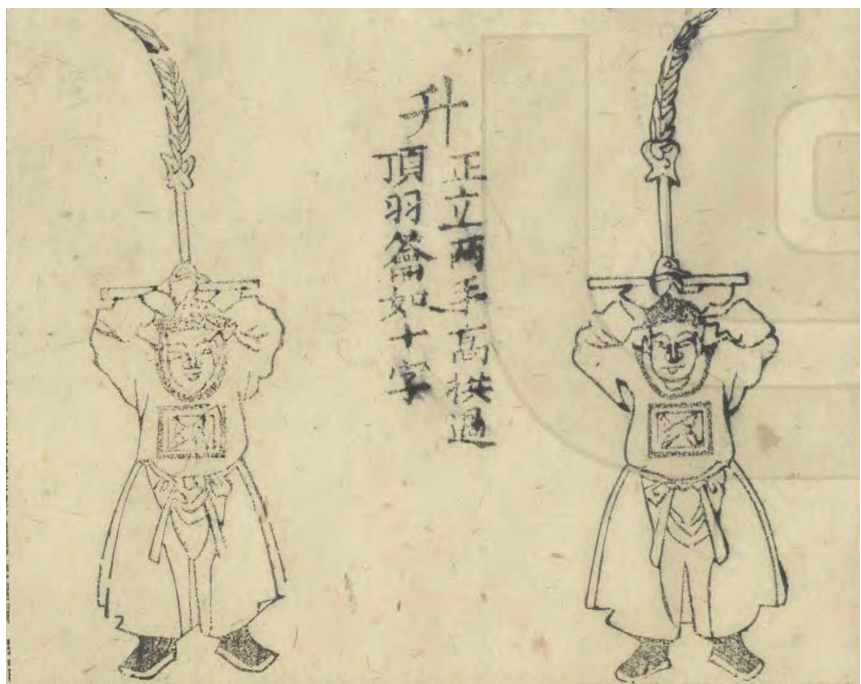 升
正立兩手高拱過
頂羽籥如十字